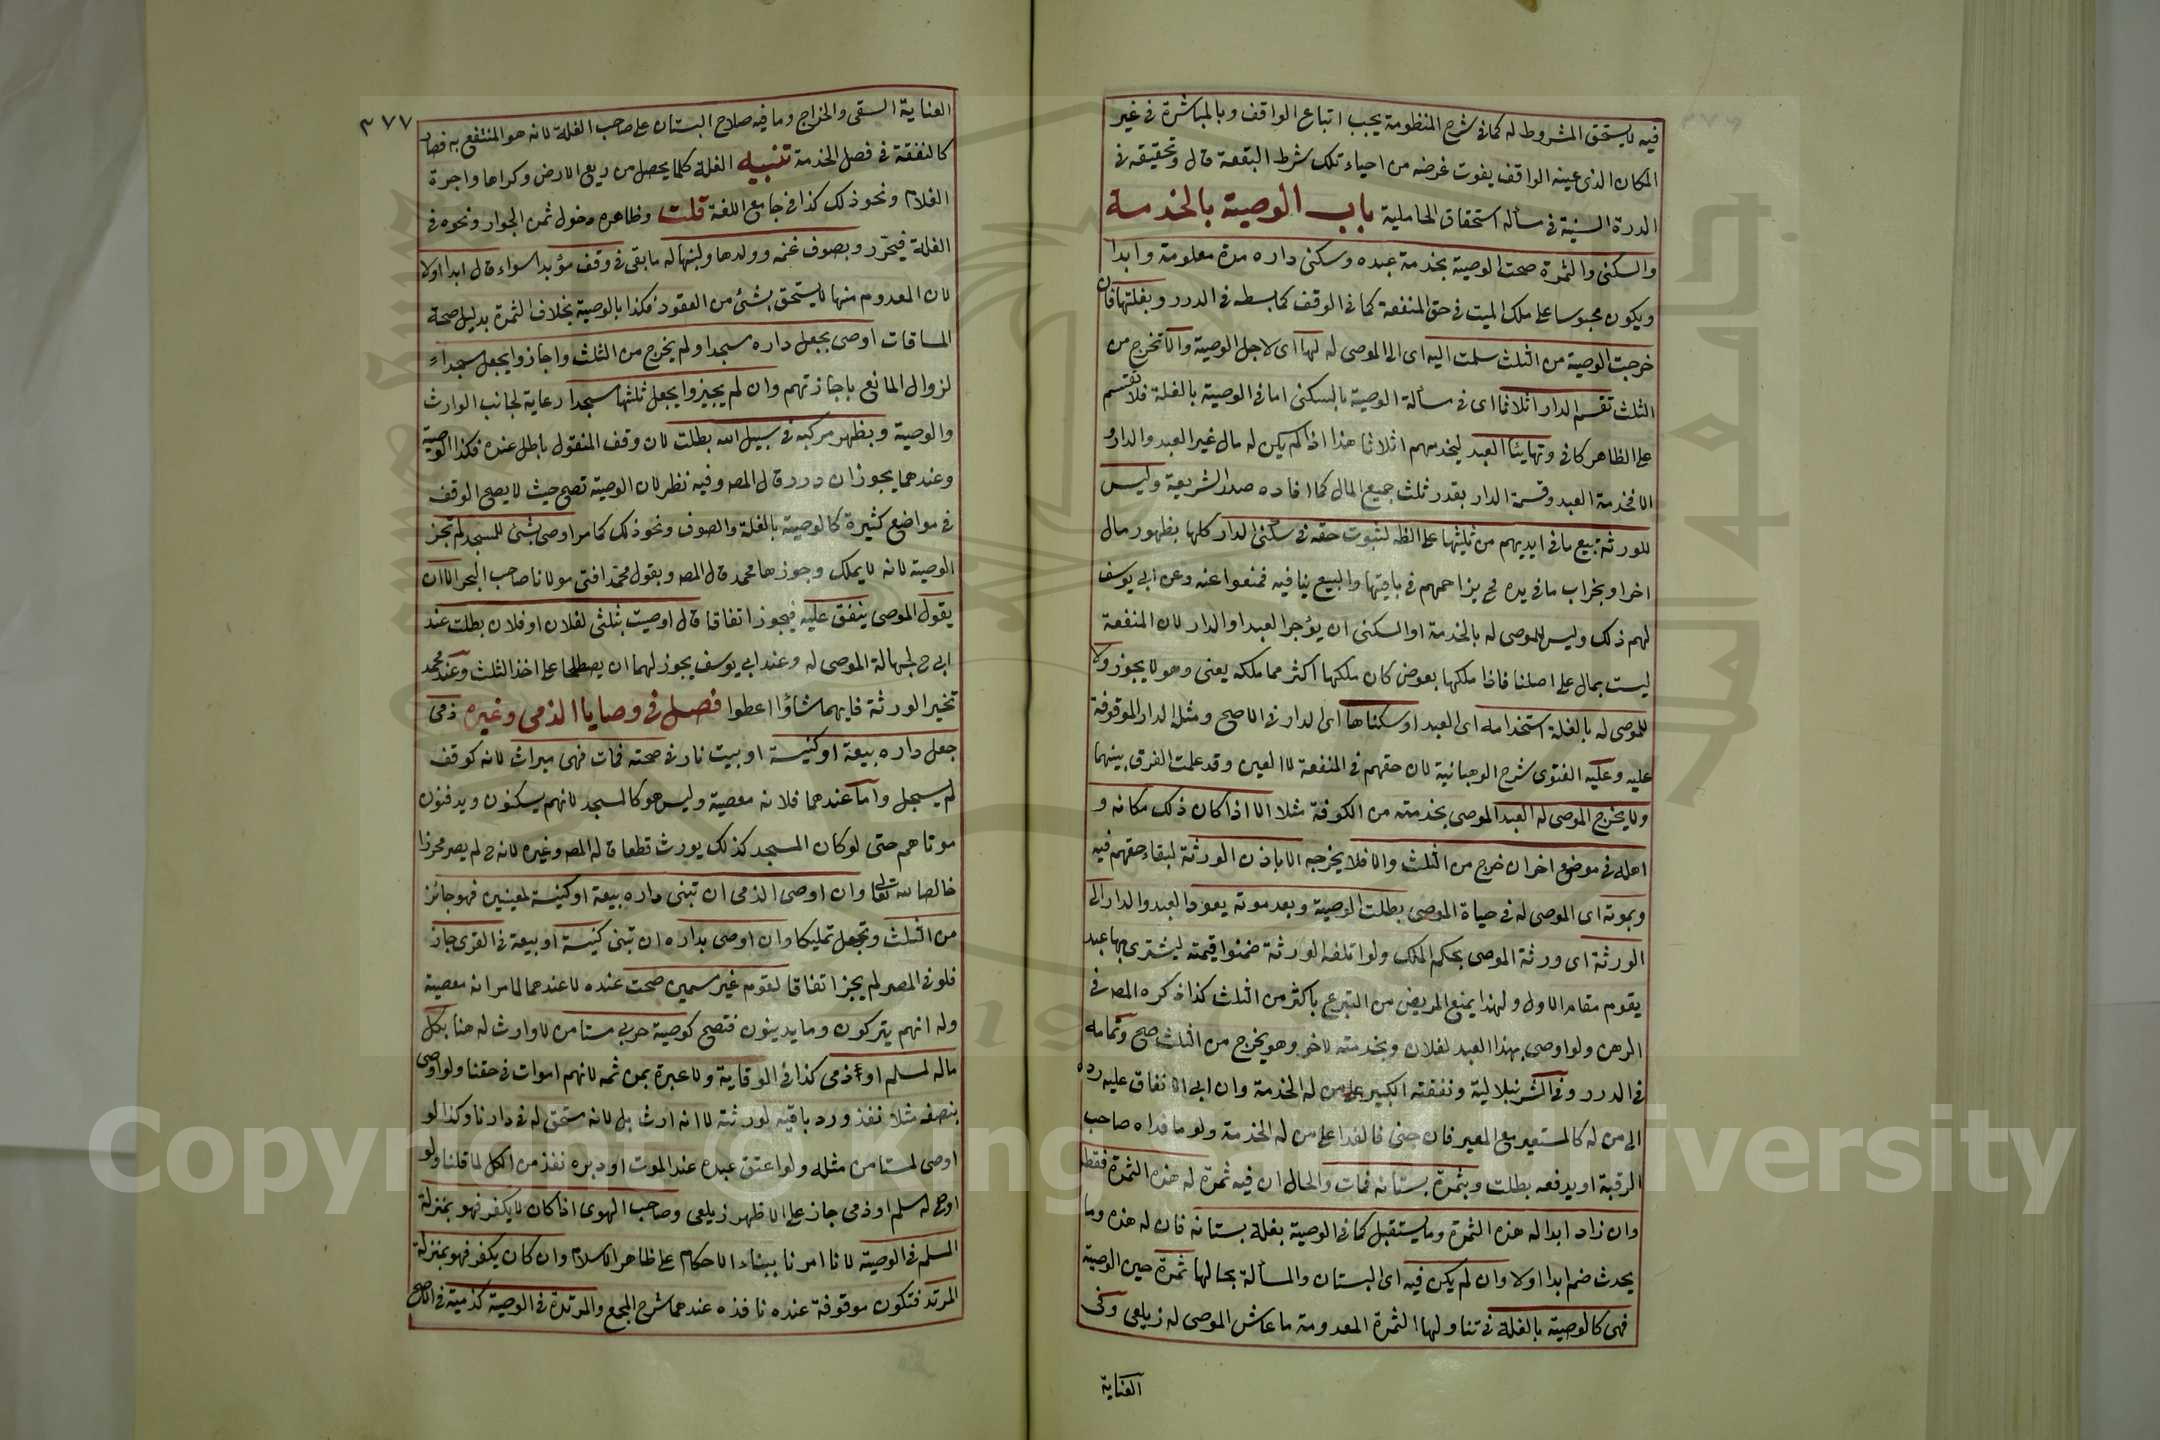 فيه لا يستحق المشروط له كما في شرح المنظومة يجب اتباع الواقف وبالمباشرة في غير
المكان الذي عينه الواقف يفوت غرضه من احياء تلك البقعة قال وتحقيقه في
الدرة السنية في مسألة استحقاق الجامكية باب الوصية بالخدمة
والسكنى والثمرة صحت الوصية بخدمة عبده وسكنى داره مدة معلومة وابدا
ويكون محبوسا على ملك الميت في حق المنفعة كما في الوقف كما بسطه في الدرر وبغلتها فان
خرجت الوصية من الثلث سلمت اليه اى الى الموصى له لها اى لاجل الوصية والا تخرج من
الثلث تقسم الدار اثلاثا اى في مسألة الوصية بالسكنى اما في الوصية بالغلة فلا تقسم
على الظاهر كافي وتهايئا العبد ليخدمهم اثلاثا هذا اذا لم يكن له مال غير العبد والدار و
الا فخدمة العبد وقسمة الدار بقدر ثلث جميع المال كما افاده صدر الشريعة وليس
للورثة بيع ما في ايديهم من ثلثيها على الظه لثبوت حقه في سكنى الدار كلها بظهور مال
اخر او بخراب ما في يده فح يزاحمهم في باقيها والبيع ينافيه فمنعوا عنه وعن ابي يوسف
لهم ذلك وليس للموصى له بالخدمة او السكنى ان يؤجر العبد او الدار لان المنفعة
ليست بمال على اصلنا فاذا ملكها بعوض كان ملكها اكثر مما ملكه يعنى وهو لا يجوز ولا
للموصى له بالغلة استخدامه اى العبد او سكناها اى الدار في الاصح ومثله الدار الموقوفة
عليه وعليه الفتوى شرح الوهبانية لان حقهم في المنفعة لا العين وقد علمت الفرق بينهما
ولا يخرج الموصى له العبد الموصى بخدمته من الكوفة مثلا الا اذا كان ذلك مكانه و
اهله في موضع اخر ان خرج من الثلث والا فلا يخرجه الا باذن الورثة لبقاء حقهم فيه
وبموته اى الموصى له في حياة الموصى بطلت الوصية وبعد موته يعود العبد والدار الى
الورثة اى ورثة الموصى بحكم الملك ولو اتلفه الورثة ضمنوا قيمته ليشترى بها عبد
يقوم مقام الاول ولهذا يمنع المريض من التبرع باكثر من الثلث كذا ذكره المصه في
الرهن ولو اوصى بهذا العبد لفلان وبخدمته لاخر وهو يخرج من الثلث صح وتمامه
في الدرر وفي الشرنبلالية ونفقته الكبير على من له الخدمة وان ابى الانفاق عليه رده
الى من له كالمستعير مع المعير فان جنى فالفداء على من له الخدمة ولو مات فداه صاحب
الرقبة او يدفعه بطلت وبثمرة بستانه فمات والحال ان فيه ثمرة له هذه الثمرة فقط
وان زاد ابدا له هذه الثمرة وما يستقبل كما في الوصية بغلة بستانه فان له هذه وما
يحدث ضم ابدا اولا وان لم يكن فيه اى البستان والمسألة بحالها ثمرة حين الوصية
فهى كالوصية بالغلة في تناولها الثمرة المعدومة ما عاش الموصى له زيلعى وفى
العناية
٣٧٧
العناية السقى والخراج وما فيه صلاح البستان على صاحب الغلة لانه هو المنتفع به فصار
كالنفقة في فصل الخدمة تنبيه الغلة كلما يحصل من ريع الارض وكراها واجرة
الغلام ونحو ذلك كذا في جامع اللغة قلت وظاهره دخول ثمن الجوار ونحوه في
الغلة فيحرر وبصوف غنمه وولدها ولبنها له ما بقى في وقف مؤبدا سواء قال ابدا اولا
لان المعدوم منها لا يستحق بشئ من العقود فكذا بالوصية بخلاف الثمرة بدليل صحة
المساقات اوصى بجعل داره مسجدا ولم يخرج من الثلث واجازوا يجعل مسجدا
لزوال المانع باجازتهم وان لم يجيزوا يجعل ثلثها مسجدا رعاية لجانب الوارث
والوصية وبظهر مركبه في سبيل الله بطلت لان وقف المنقول باطل عنده فكذا الوصية
وعندهما يجوزان درر قال المصه وفيه نظر لان الوصية تصح حيث لا يصح الوقف
في مواضع كثيرة كالوصية بالغلة والصوف ونحو ذلك كما مر اوصى بشئ للمسجد لم تجز
الوصية لانه لا يملك وجوزها محمد قال المصه وبقول محمد افتى مولانا صاحب البحر الا ان
يقول الموصى ينفق عليه فيجوز اتفاقا قال اوصيت بثلثى لفلان او فلان بطلت عند
ابى ح لجهالة الموصى له وعند ابى يوسف يجوز لهما ان يصطلحا على اخذ الثلث وعند محمد
تخير الورثة فايهما شاؤا اعطوا فصل في وصايا الذمى وغيره ذمى
جعل داره بيعة او كنيسة او بيت نار في صحته فمات فهى ميراث لانه كوقف
لم يسجل واما عندهما فلانه معصية وليس هو كالمسجد لانهم يسكنون ويدفنون
موتاهم حتى لو كان المسجد كذلك يورث قطعا قاله المصه وغيره لانه ح لم يصر محرزا
خالصا لله تعالى وان اوصى الذمى ان تبنى داره بيعة او كنيسة لمعينين فهو جائز
من الثلث وتجعل تمليكا وان اوصى بداره ان تبنى كنيسة او بيعة في القرى جاز
فلو في المصر لم يجز اتفاقا لقوم غير مسمين صحت عنده لا عندهما لما مر انه معصية
وله انهم يتركون وما يدينون فتصح كوصية حربى مستامن لا وارث له هنا بكل
ماله لمسلم او ذمى كذا في الوقاية ولا عبرة بمن ثمه لانهم اموات في حقنا ولو اوصى
بنصفه مثلا نفذ ورد باقيه لورثته لا انه ارث بل لانه مستحق له في دارنا وكذا لو
اوصى لمستامن مثله ولو اعتق عبده عند الموت او دبره نفذ من الكل لما قلنا ولو
اوصى له مسلم او ذمى جاز على الاظهر زيلعى وصاحب الهوى اذا كان لا يكفر فهو بمنزلة
المسلم في الوصية لانا امرنا ببناء الاحكام على ظاهر الاسلام وان كان يكفر فهو بمنزلة
المرتد فتكون موقوفة عنده نافذه عندهما شرح المجمع والمرتدة في الوصية كذمية في الاصح